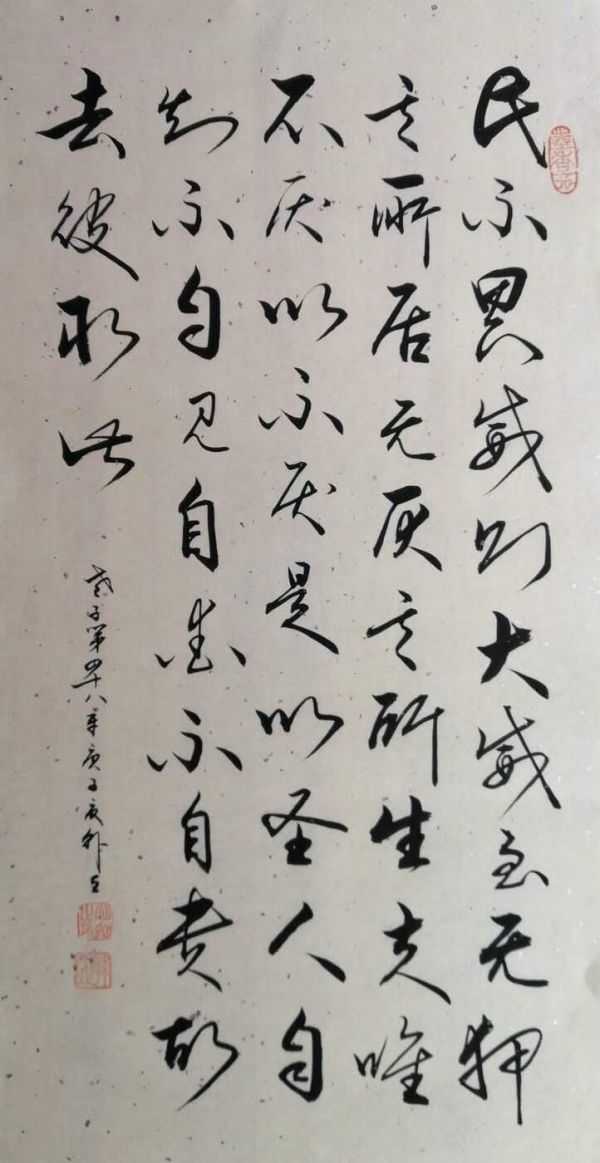 民不畏威则大威至无狎
其所居无厌其所生夫唯
不厌以不厌是以圣人自
知不自见自爱不自贵故
去彼取此
老子第四十八章庚子夏